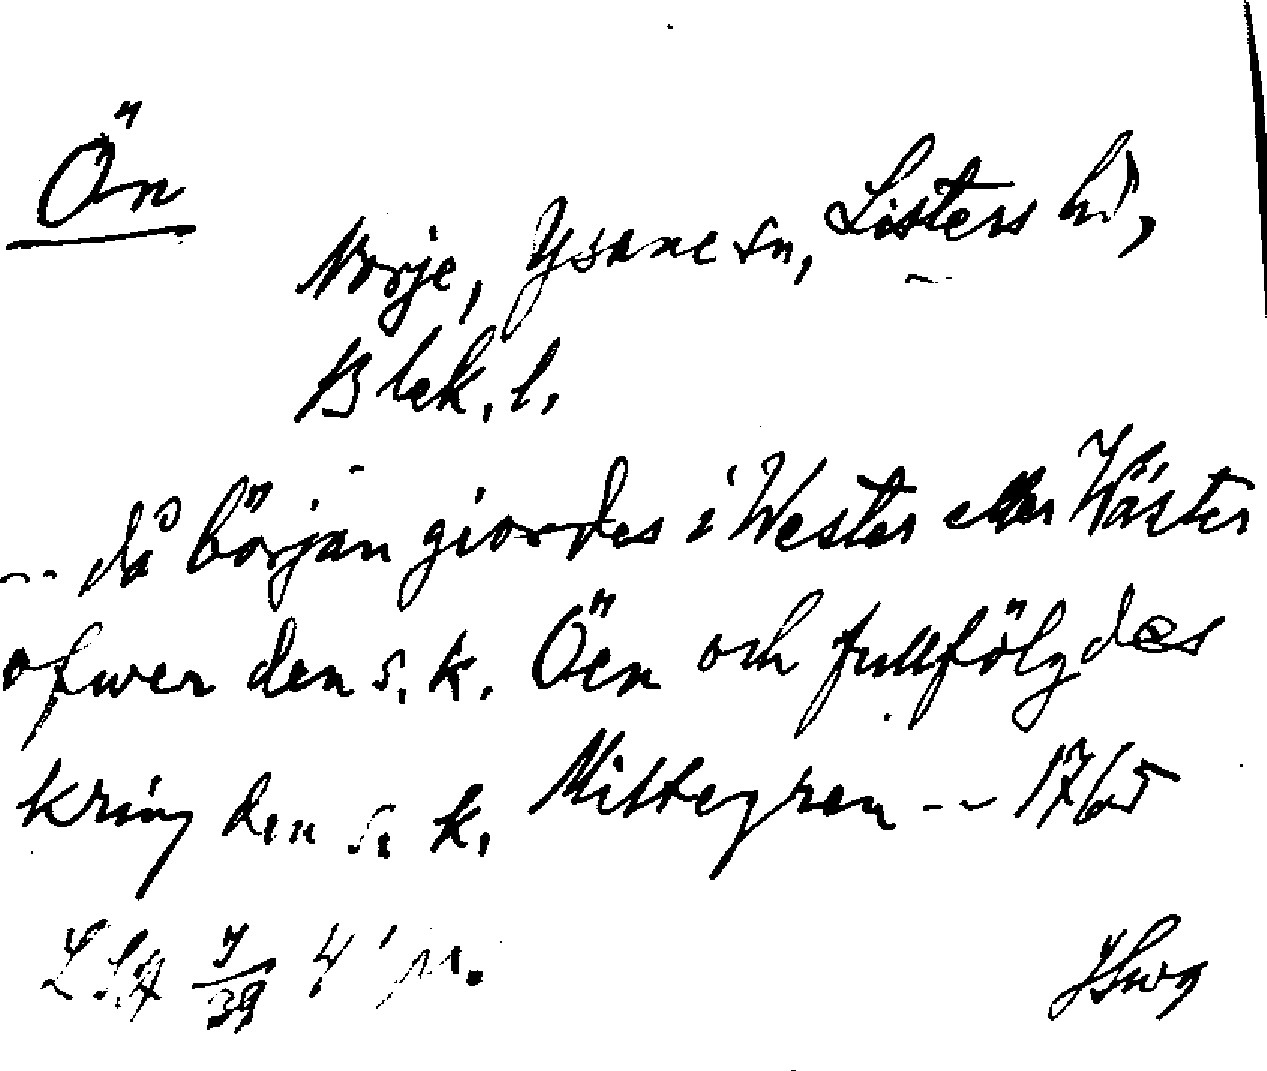 Ön
Norje, Ysane sn, Listers hd,
Blek. l.
-- då början giordes i Wester eller Wäster
ofwer den s. k. Öen och fullfölgdes
kring den s. k. Mittegren -- 1765
LSA 7/39 4